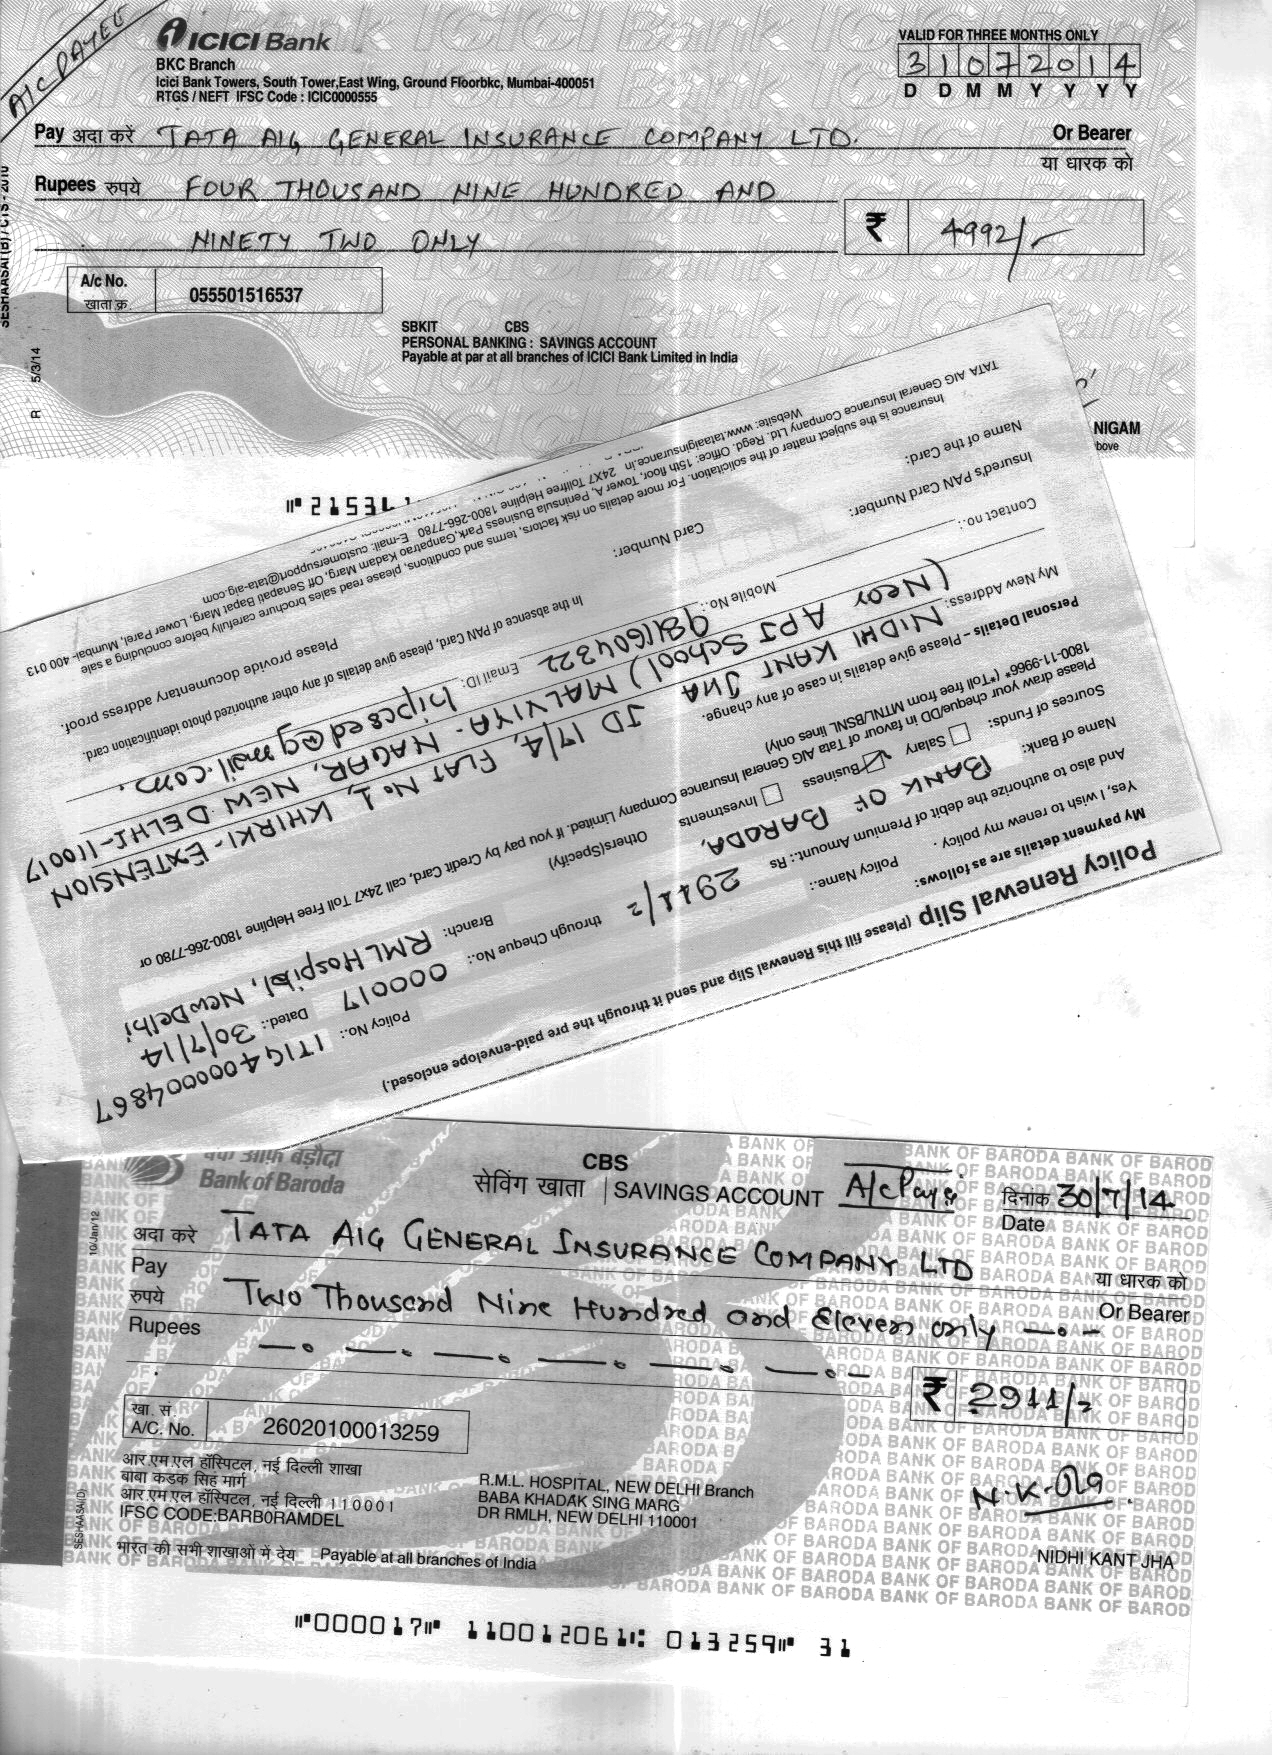 A/C PAYEE
ICICI Bank
BKC Branch
Icici Bank Towers, South Tower,East Wing, Ground Floorbkc, Mumbai-400051
RTGS / NEFT IFSC Code : ICIC0000555
VALID FOR THREE MONTHS ONLY
31072014
D D M M Y Y Y Y
Pay अदा करें TATA AIG GENERAL INSURANCE COMPANY LTD. Or Bearer
या धारक को
Rupees रुपये FOUR THOUSAND NINE HUNDRED AND
NINETY TWO ONLY
₹ 4992/-
A/c No.
खाता क्र. 055501516537
SBKIT CBS
PERSONAL BANKING : SAVINGS ACCOUNT
Payable at par at all branches of ICICI Bank Limited in India
SESHAASAI (B) / CTS - 2010
R 5/3/14
NIGAM
bove
Policy Renewal Slip (Please fill this Renewal Slip and send it through the pre paid-envelope enclosed.)
My payment details are as follows:
Yes, I wish to renew my policy . Policy Name.: Policy No.: ITIG4000004867
And also to authorize the debit of Premium Amount.: Rs 2911/= through Cheque No.: 000017 Dated.: 30/7/14
Name of Bank: BANK OF BARODA, Branch: RML Hospital, New Delhi
Sources of Funds: Salary Business Investments Others(Specify)
Please draw your cheque/DD in favour of Tata AIG General Insurance Company Limited. If you pay by Credit Card, call 24x7 Toll Free Helpline 1800-266-7780 or
1800-11-9966* (*Toll free from MTNL/BSNL lines only)
Personal Details – Please give details in case of any change.
My New Address: NIDHI KANT JHA JD 17/4, FLAT No 1, KHIRKI-EXTENSION
(Near APJ School) MALVIYA-NAGAR, NEW DELHI-110017
Contact no.: Mobile No.: 9811604322 Email ID: hipcsed@gmail.com.
Insured's PAN Card Number: In the absence of PAN Card, please give details of any other authorized photo identification card.
Name of the Card: Card Number: Please provide documentary address proof.
Insurance is the subject matter of the solicitation. For more details on risk factors, terms and conditions, please read sales brochure carefully before concluding a sale
TATA AIG General Insurance Company Ltd. Regd. Office: 15th floor, Tower A, Peninsula Business Park,Ganpatrao Kadam Marg, Off Senapati Bapat Marg, Lower Parel, Mumbai- 400 013
Website: www.tataaiginsurance.in 24X7 Tollfree Helpline 1800-266-7780 E-mail: customersupport@tata-aig.com
बैंक ऑफ़ बड़ौदा
Bank of Baroda
CBS
सेविंग खाता | SAVINGS ACCOUNT
दिनांक 30/7/14
Date
10/Jan/12
अदा करे TATA AIG GENERAL INSURANCE COMPANY LTD
Pay या धारक को
रुपये Two Thousand Nine Hundred and Eleven only Or Bearer
Rupees
₹ 2911/=
खा. सं.
A/C. No. 26020100013259
आर.एम.एल हॉस्पिटल, नई दिल्ली शाखा
बाबा कडक सिंह मार्ग
आर.एम.एल हॉस्पिटल, नई दिल्ली 110001
IFSC CODE:BARB0RAMDEL
R.M.L. HOSPITAL, NEW DELHI Branch
BABA KHADAK SING MARG
DR RMLH, NEW DELHI 110001
भारत की सभी शाखाओं में देय Payable at all branches of India
NIDHI KANT JHA
SESHAASAI(D)
⑈000017⑈ 110012061⑆ 013259⑈ 31